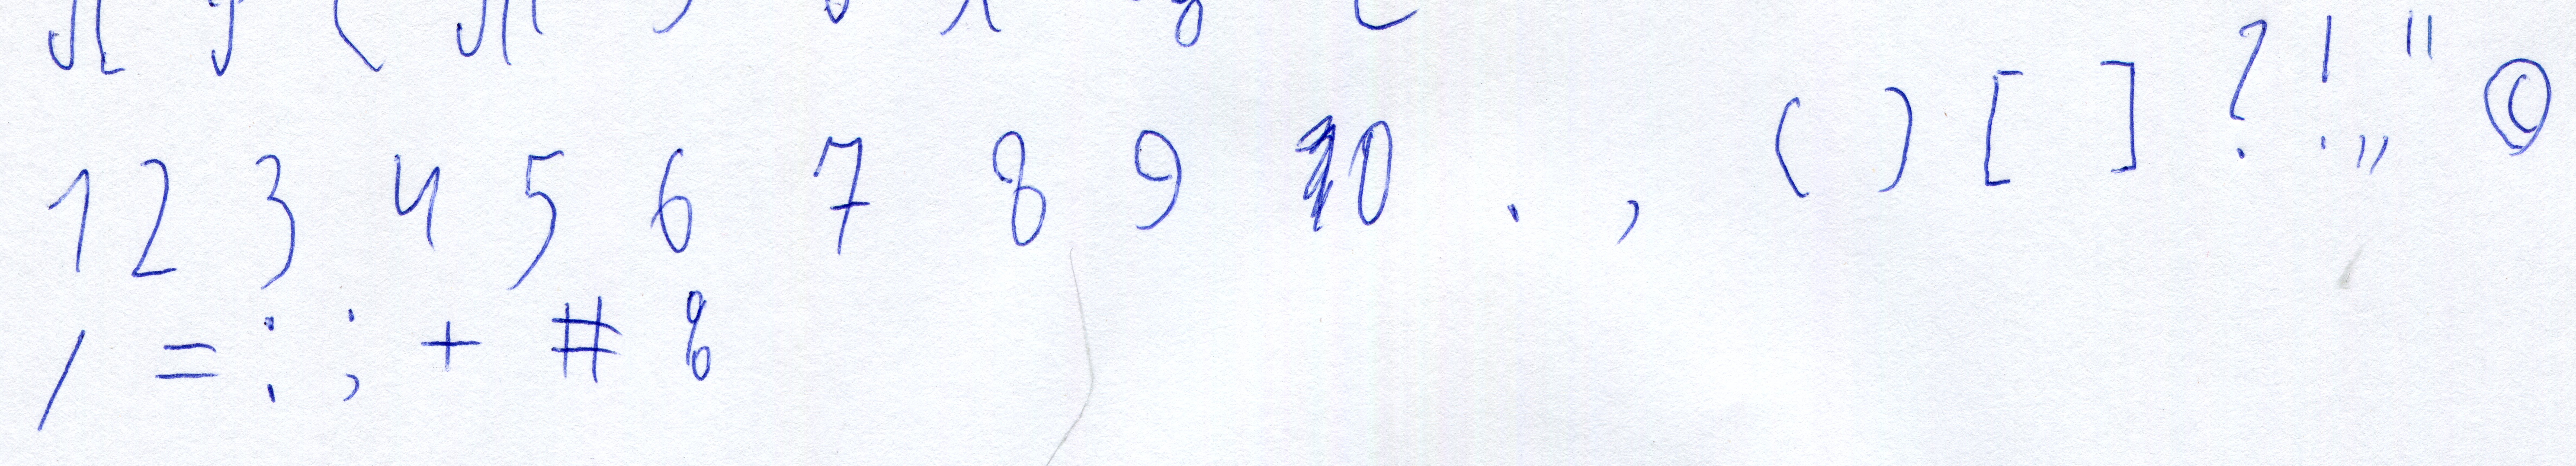 1 2 3 4 5 6 7 8 9 10 . , ( ) [ ] ? ! „ " ©
/ = : ; + #